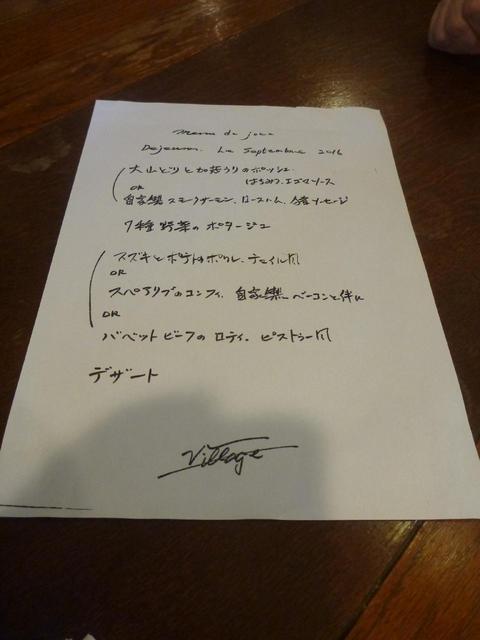 Menu du jour
Dejeuner. Le Septembre 2016
大山どりと加茂うりのポッシェ
はちみつ、エゴマソース
OR
自家製スモークサーモン、ローストハム、ソーセージ
7種野菜のポタージュ
スズキとポテトのポワレ、
OR
スペアリブのコンフィ、自家製ベーコンと伴に
OR
バベットビーフのロティ、ピストゥー風
デザート
Village